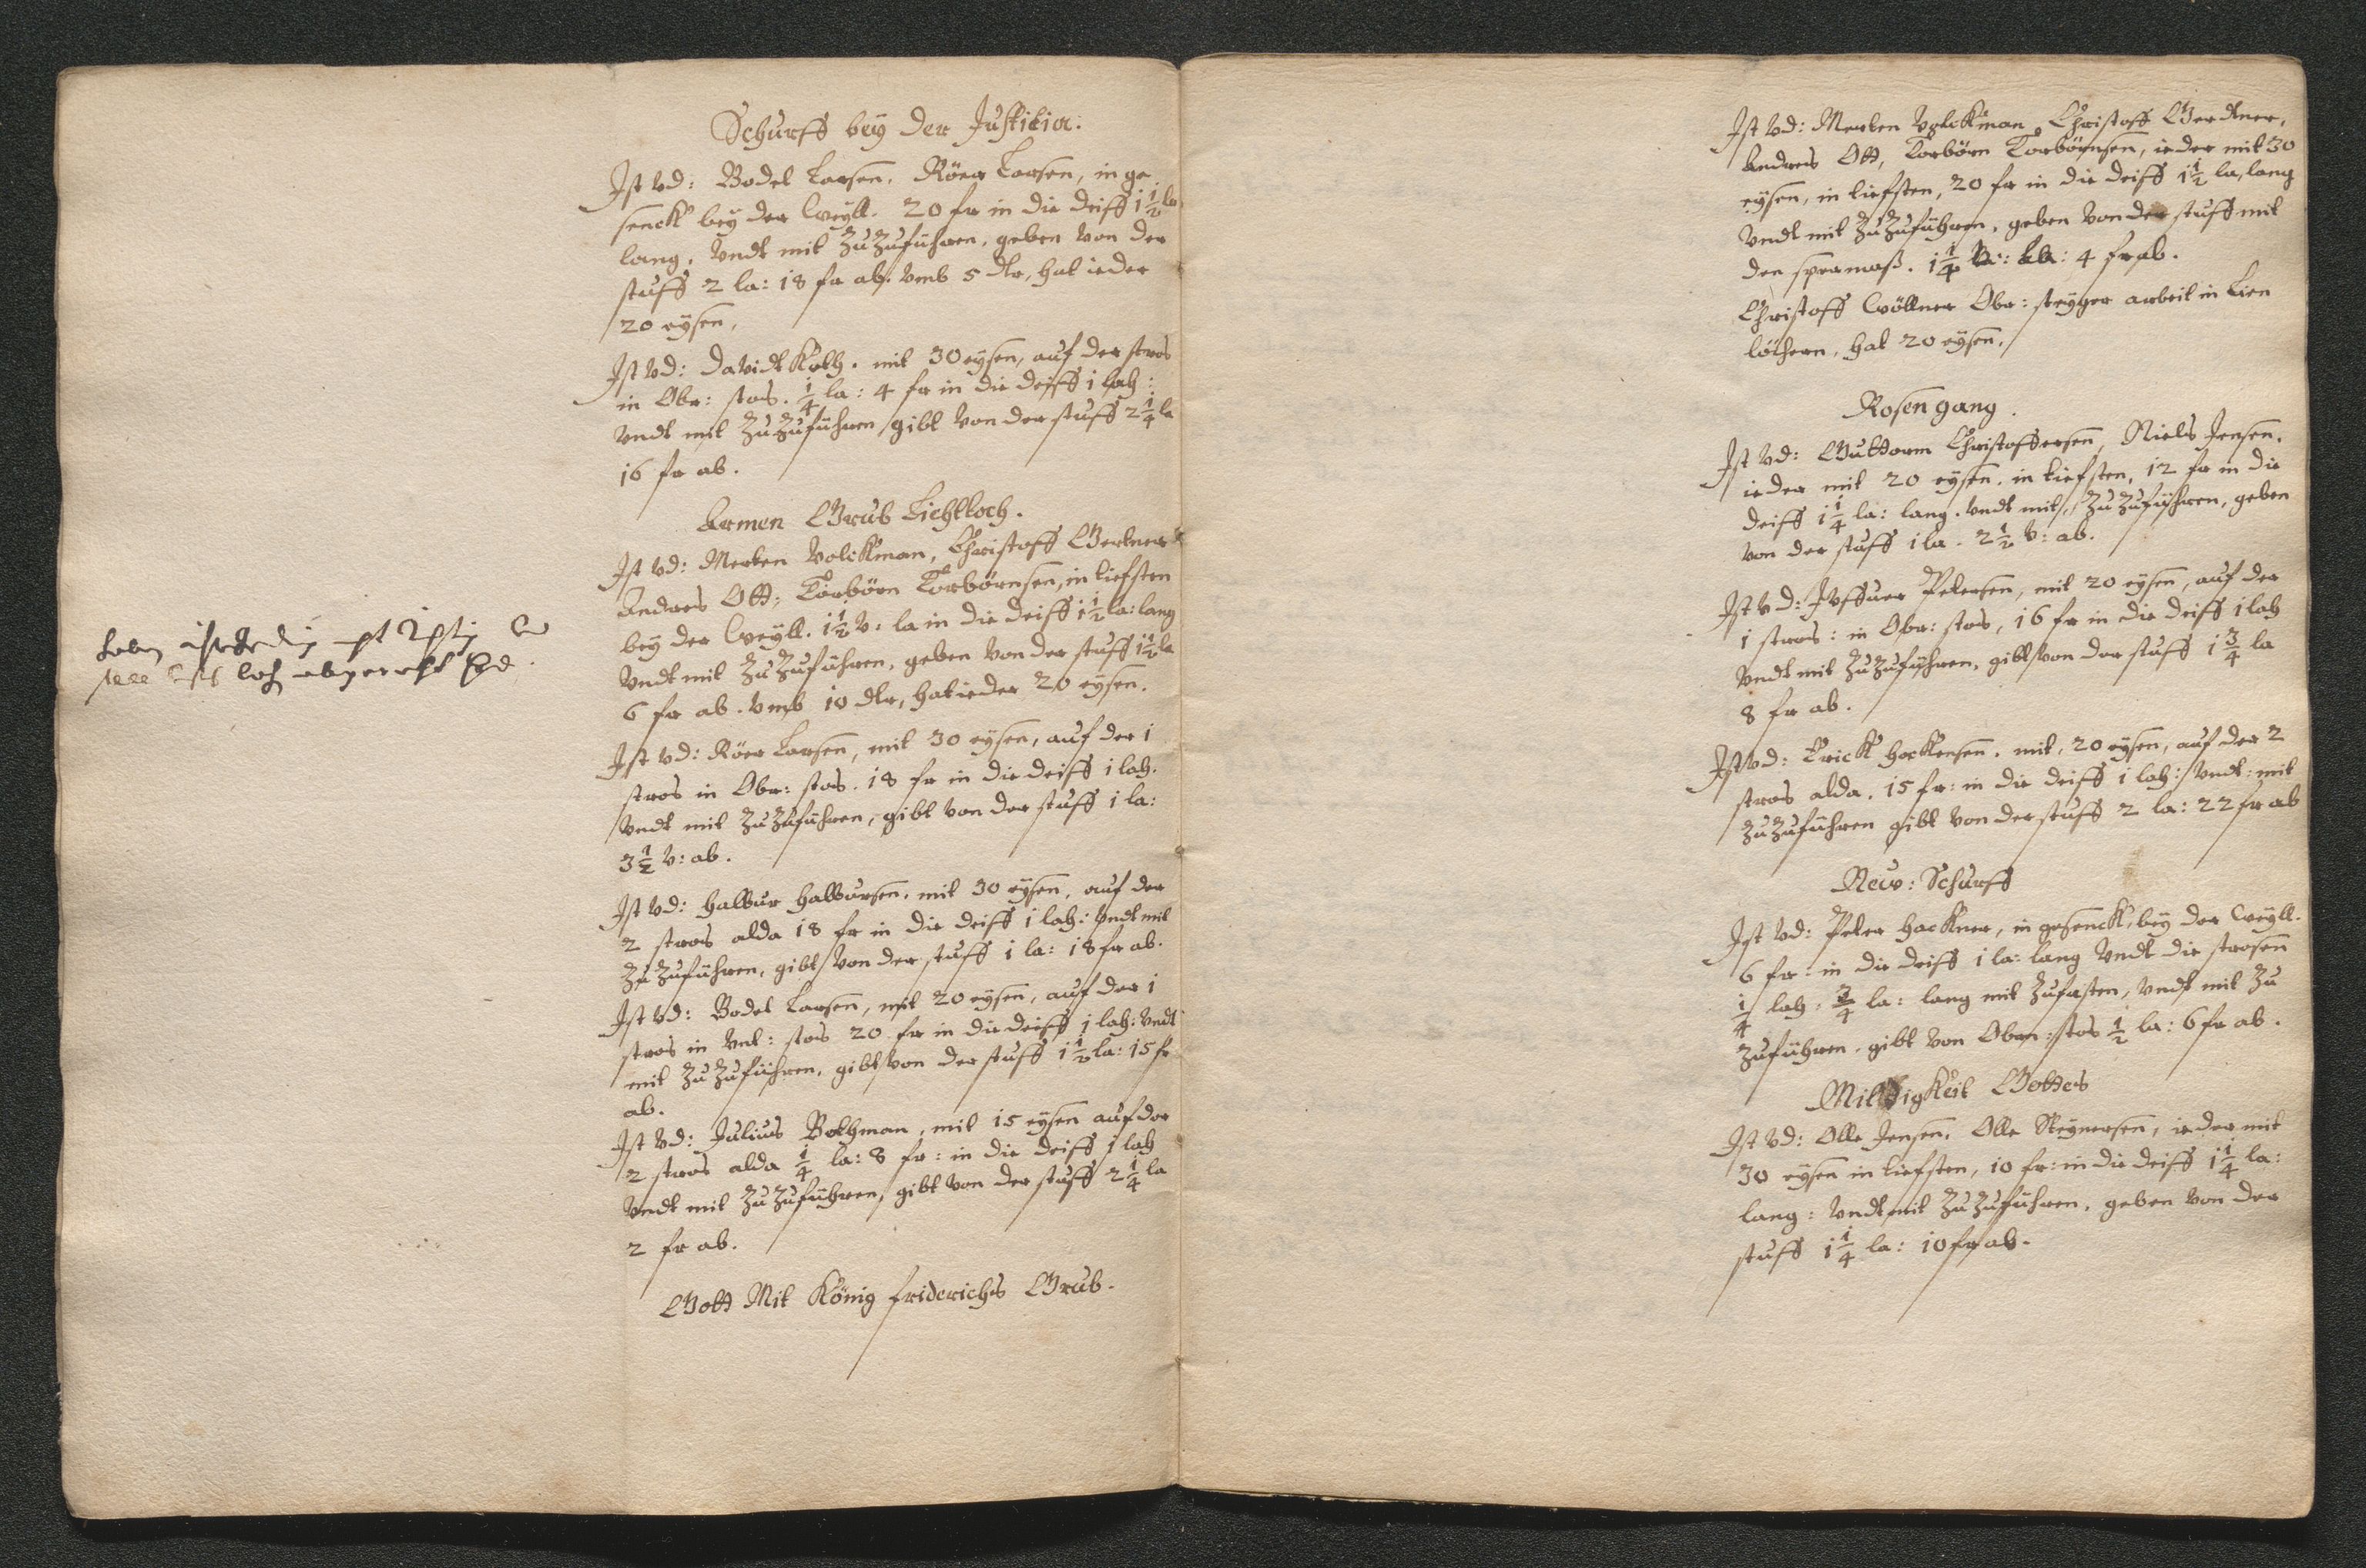 Schurff bey der Justitia.
Ist vd: Bodel Larsen, Röer Larsen, in ge
senck bey der Weyll. 20 fr in die deiff 1 1/2 la
lang, vndt mit Zu Zuführen, geben von der
stuff 2 la: 18 fr ab. vmb 5 dlr, hat ieder
20 eysen,
Ist vd: Davidt Koth. mit 30 eysen, auf der stros
in Obr: stos. 1/4 la: 4 fr in die deiff 1 lah:
vndt mit Zu Zuführen gibt von der stuff 2 1/4 la
16 fr ab.
Armen Grub Lichtloch.
Ist vd: Merten Volckman, Christoff Gertner
Andres Ott, Torbörn Torbörnsen, in tiefsten
bey der Weyll. 1 1/2 v: la in die deiff 1 1/2 la: lang
vndt mit Zu Zuführen, geben von der stuff 1 1/2 la
6 fr ab. vmb 10 dlr, hat ieder 20 eysen.
Ist vd: Röer Larsen, mit 30 eysen, auf der 1
stros in Obr: stos. 18 fr in die deiff 1 lah.
vndt mit Zu Zuführen, gibt von der stuff 1 la:
3 1/2 v: ab.
Ist vd: Halvur Halvursen, mit 30 eysen, auf der
2 stros alda 18 fr in die deiff 1 lah: vndt mit
Zu Zuführen, gibt von der stuff 1 la: 18 fr ab.
Ist vd: Bodel Larsen, mit 20 eysen, auf der 1
stros in vnt: stos 20 fr in die deiff 1 lah: vndt
mit Zu Zuführen, gibt von der stuff 1 1/2 la: 15 fr
ab.
Ist vd: Julius Bothman, mit 15 eysen auf der
2 stros alda 1/4 la: 8 fr: in die deiff 1 lah
vndt mit Zu Zuführen, gibt von der stuff 2 1/4 la
2 fr ab.
Gott Mit König friderichs Grub.
loch
Ist vd: Merten Volckman, Christoff Gerdtner,
Andres Ott, Torbörn Torbörnsen, ieder mit 30
eysen, in tiefsten, 20 fr in die deiff 1 1/2 la, lang
vndt mit Zu Zuführen, geben von der stuff mit
den spermaß. 1 1/4 la: 4 fr ab.
Christoff Wöllner Obr: steyger arbeit in Lien
löchern, hat 20 eysen.
Rosen gang.
Ist vd: Guttorm Christoffersen, Niels Jensen.
ieder mit 20 eysen, in tiefsten, 12 fr in die
deiff 1 1/4 la: lang, vndt mit, Zu Zuführen, geben
von der stuff 1 la. 2 1/2 v: ab.
Ist vd: Petersen, mit 20 eysen, auf der
1 stros: in Obr: stos, 16 fr in die deiff 1 lah
vndt mit Zu Zuführen, gibt von der stuff 1 3/4 la
8 fr ab.
Ist vd: Erick Hackensen. mit, 20 eysen, auf der 2
stros alda. 15 fr: in die deiff 1 lah: vndt: mit
Zu Zuführen gibt von der stuff 2 la: 22 fr ab
New: Schurff
Ist vd: Peter Hackner, in gesenck, bey der Weyll.
6 fr: in die deiff 1 la: lang vndt die strosen
1/4 lah: 3/4 la: lang mit Zufasten, vndt mit Zu
Zuführen. gibt von Obern: stos 1/2 la: 6 fr ab.
Mildigkeit Gottes
Ist vd: Olle Jensen, Olle Steynersen, ieder mit
30 eysen in tiefsten, 10 fr: in die deiff 1 1/4 la:
lang: vndt mit Zu Zuführen, geben von der
stuff 1 1/4 la: 10 fr ab.